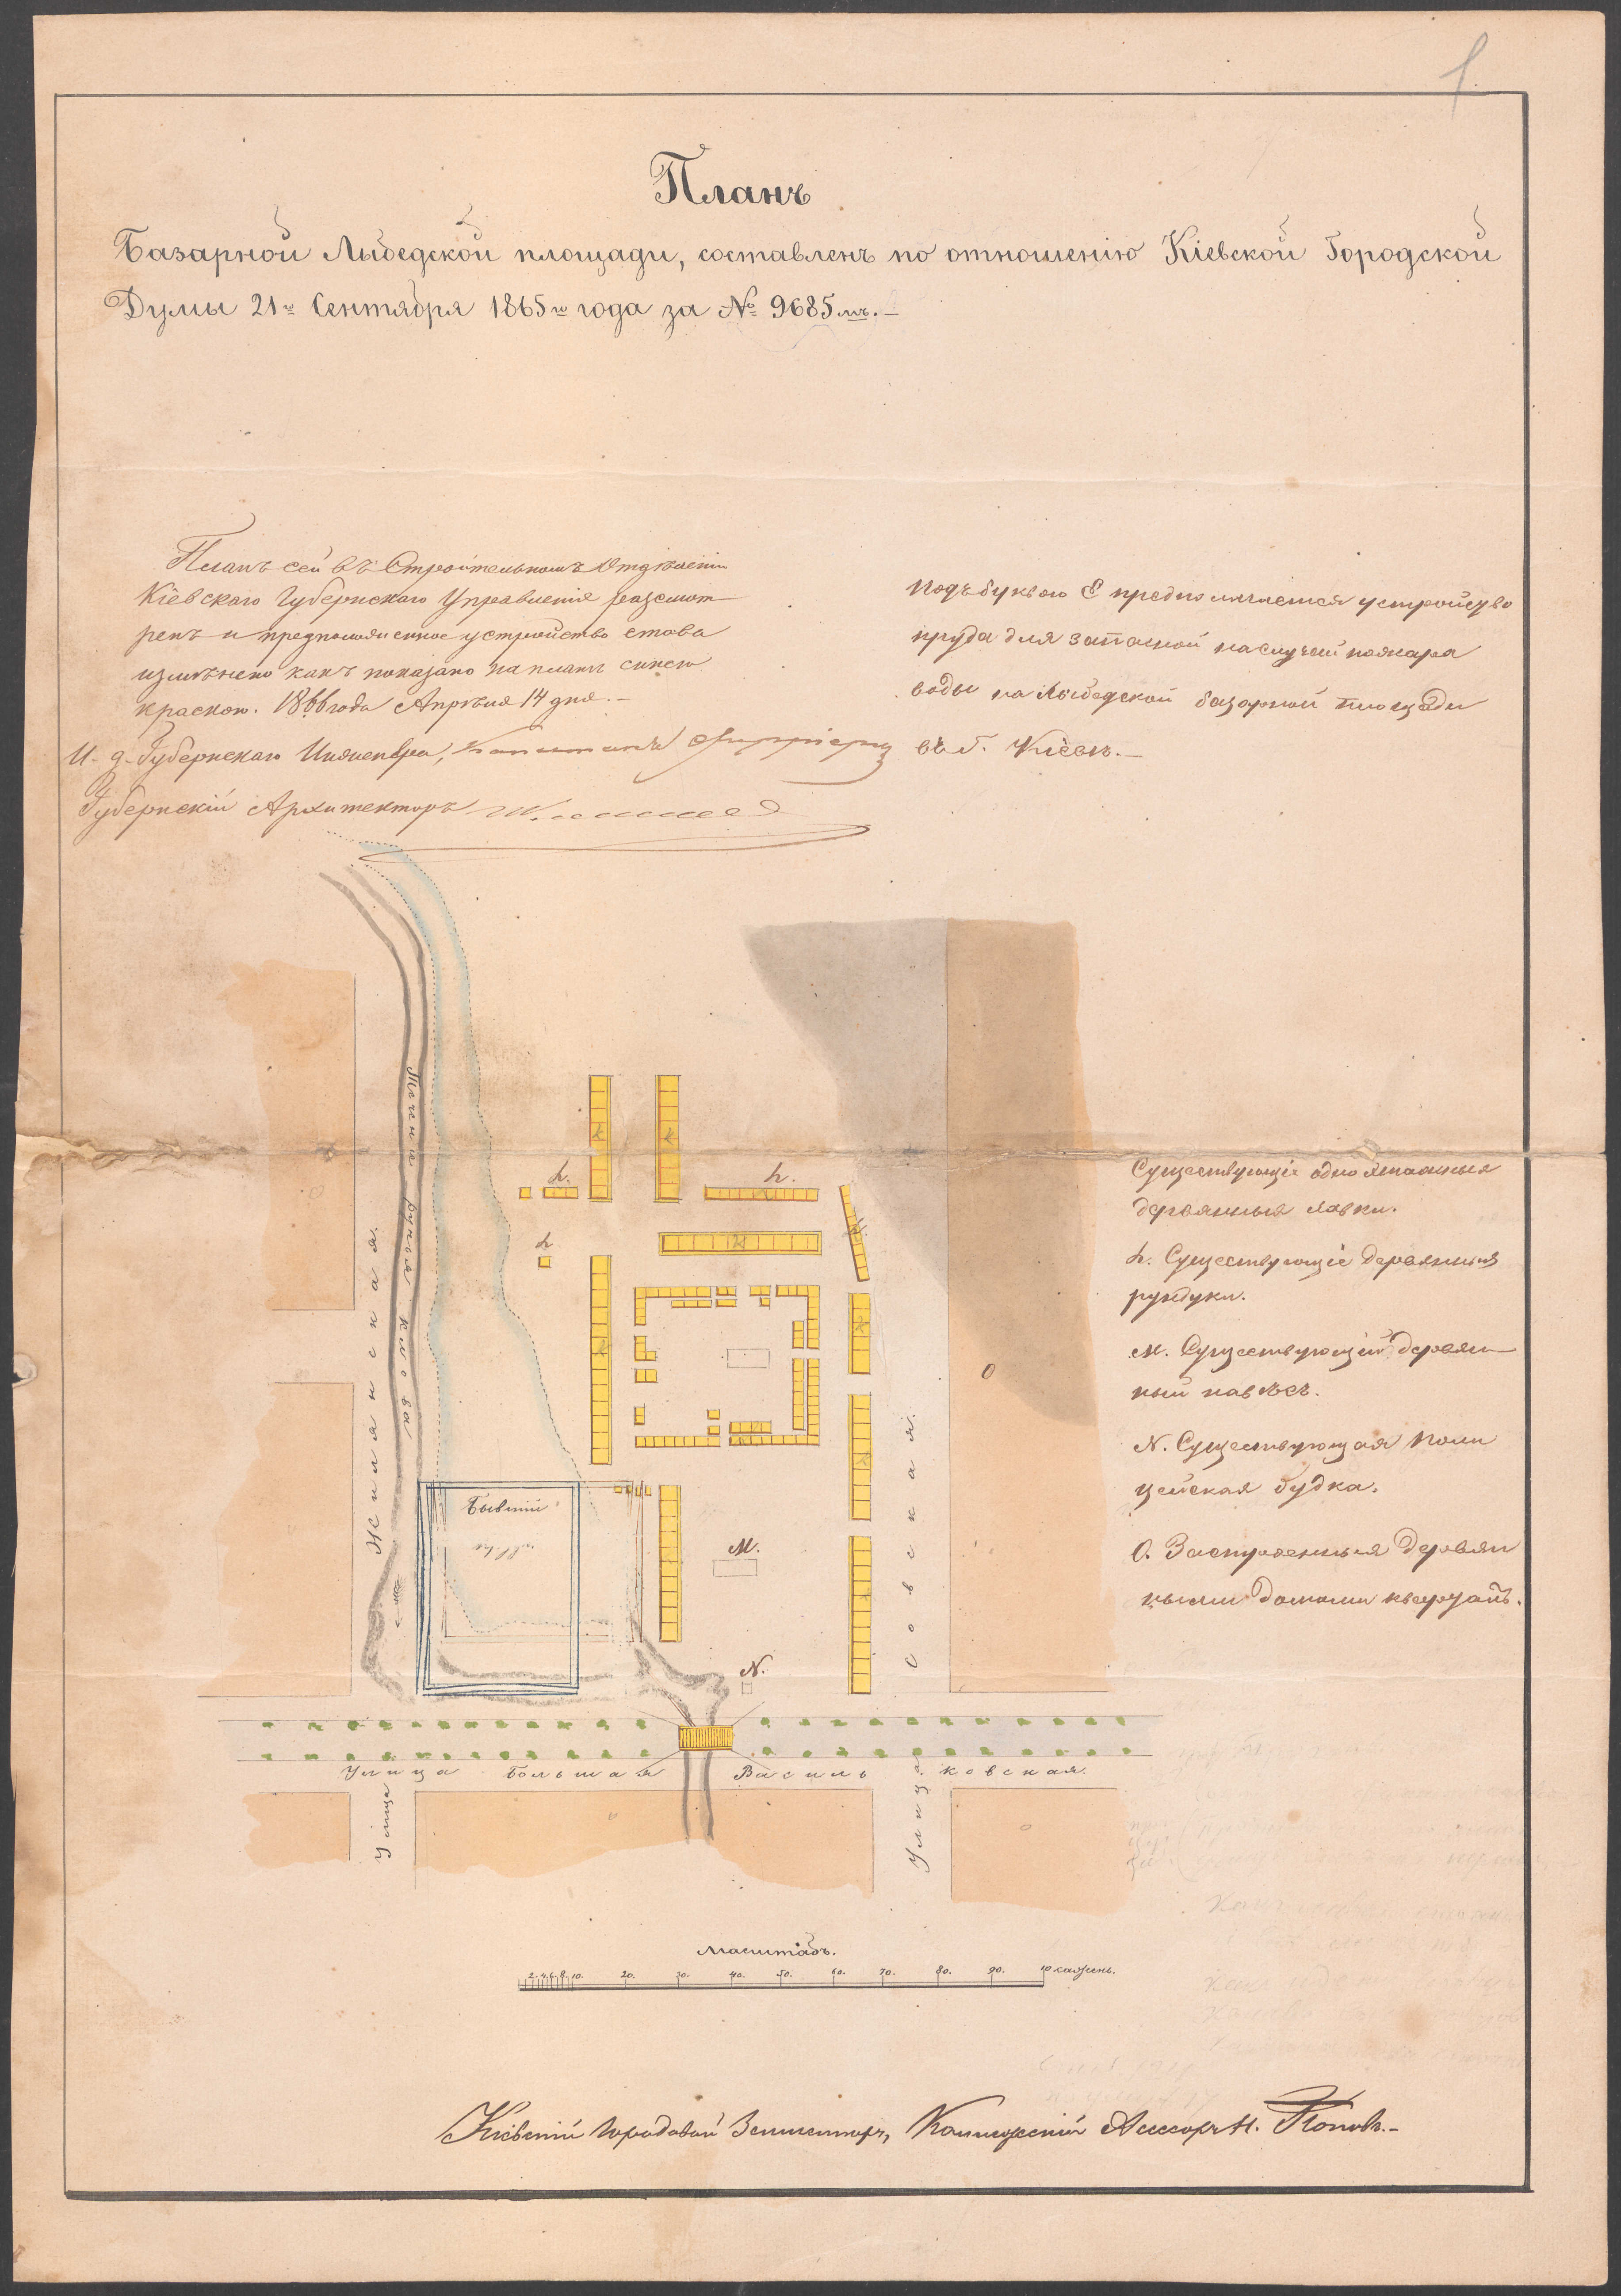 Планъ
Базарной Лыбедской площади, составленъ по отношенію Кіевской Городской
Думы 21го Сентября 1865го года за № 9685мъ.
Планъ сей въ Строительномъ Отдѣленіи
Кіевскаго Губернскаго Управленія разсмот
ренъ и предположенное устройство става
измѣнено какъ показано на планѣ синею
краскою. 1866 года Апрѣля 14 дня.
И. д. Губернскаго Инженера, Капитанъ
Губернскій Архитекторъ
Подъ буквою Е предполагается устройство
пруда для запасной на случай пожара
воды на Лыбедской базарной площади
въ г. Кіевѣ.
h.
h.
h
Течение ручья Кловa
Жилянская.
Совская.
Существующіе одноэтажныя
деревянныя лавки.
h. Существующіе деревянныя
рундуки.
М. Существующій деревян
ный навѣсъ.
N. Существующая поли
цейская будка.
О. Застроенныя деревян
ными домами кварталъ.
Бывшій
М.
N.
О
Улица Большая Васильковская.
Улица
Улица
Масштабъ.
2. 4. 6. 8. 10. 20. 30. 40. 50. 60. 70. 80. 90. саженъ.
Кіевскій Городовой Землемеръ, Коллежскій Ассесоръ Н. Поповъ.